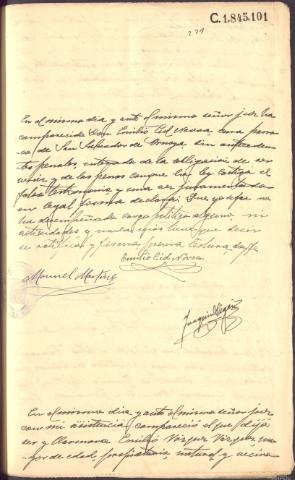 C.1.845.101
En el mismo dia y ante el mismo señor juez ha
comparecido Don Emilio Cid Novoa cura parro
co de San Salvador de, sin anteceden
tes penales, enterado de la obligación de ser
veraz y de las penas conque la ley castiga el
falso testimonio y una vez juramentado
en legal forma declara: Que
ha desempeñado cargo político alguno, ni
actividades y nada más tiene que decir
se ratifica y firma previa lectura, doy fe
Emilio Cid Novoa
Manuel Martinez
Joaquin
En el mismo dia y ante el mismo señor juez
con mi asistencia compareció el que dijo
ser y llamarse Emilio Vazquez Vazquez ma
yor de edad, propietario, natural y vecino